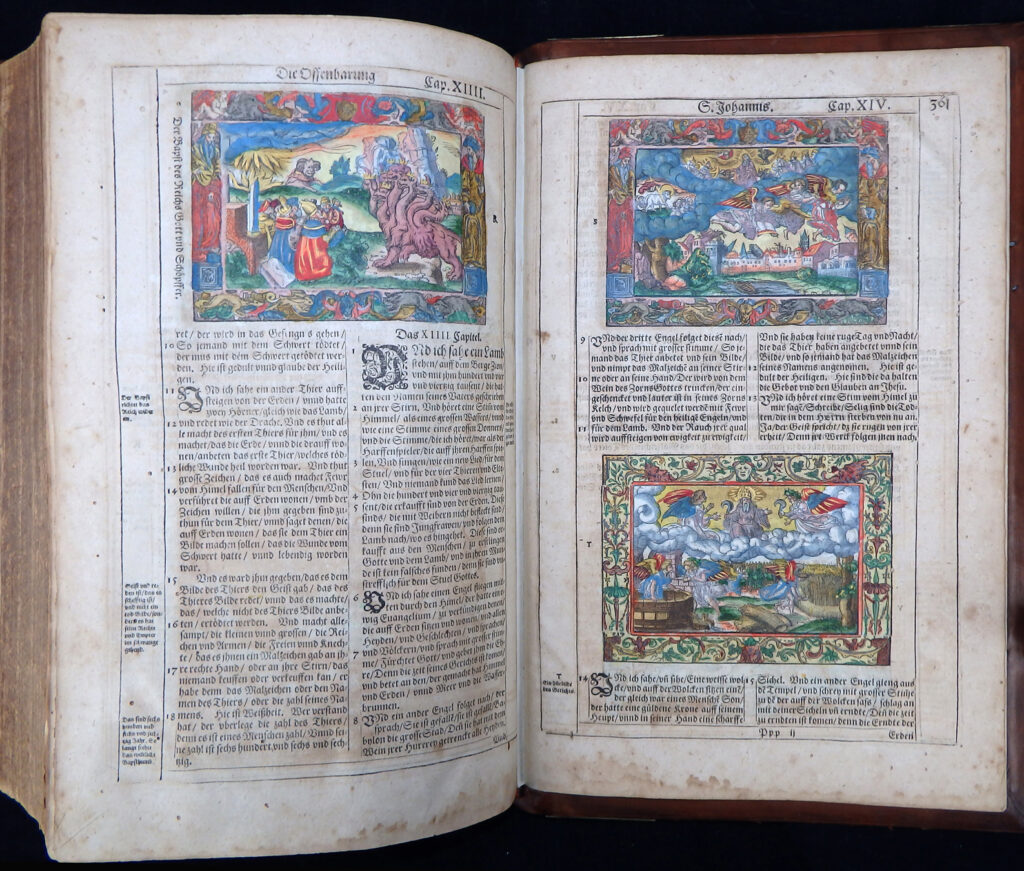 Die Offenbarung
Cap. XIIII.
Der Bapst des Reichs Gott vnd Schöpffer.
B.
ret/ der wird in das Gefengnis gehen/
10 So jemand mit dem Schwert tödtet/
der mus mit dem Schwert getödtet wer-
den. Hie ist gedult vnnd glaube der Heili-
gen.
11 VNd ich sahe ein ander Thier auff-
steigen von der Erden / vnnd hatte
zwey Hörner/ gleich wie das Lamb/
12 vnd redet wie der Drache. Vnd es thut al-
le macht des ersten Thiers für jhm/ vnd es
machet/ das die Erde/ vnnd die drauff wo-
nen/ anbeten das erste Thier/ welches töd-
13 liche Wunde heil worden war. Vnd thut
grosse Zeichen / das es auch machet Fewr
14 vom Himel fallen für den Menschen/ Vnd
verführet die auff Erden wonen / vmb der
Zeichen willen / die jhm gegeben sind zu-
thun für dem Thier / vnnd saget denen / die
auff Erden wonen / das sie dem Thier ein
Bilde machen sollen / das die Wunde vom
Schwert hatte / vnnd lebendig worden
war.
15 Vnd es ward jhm gegeben/ das es dem
Bilde des Thiers den Geist gab / das des
Thieres Bilde redet/ vnnd das es machte/
das / welche nicht des Thiers Bilde anbe-
16 ten/ ertödtet werden. Vnd macht alle-
sampt / die kleinen vnnd grossen / die Rei-
chen vnd Armen / die Freien vnnd Knech-
te / das es jhnen ein Malzeichen gab an jh-
17 re rechte Hand / oder an jhre Stirn/ das
niemand keuffen oder verkeuffen kan / er
habe denn das Malzeichen oder den Na-
men des Thiers / oder die zahl seines Na-
18 mens. Hie ist Weißheit. Wer verstand
hat / der vberlege die zahl des Thiers/
denn es ist eines Menschen zahl/ Vnnd sei-
ne zahl ist sechs hundert/ vnd sechs vnd sech-
tzig.
Das XIIII Capitel.
1 VNd ich sahe ein Lamb
stehen/ auff dem Berge Zion/
vnd mit jhm hundert vnd vier
vnd viertzig tausent/ die hat-
ten den Namen seines Vaters geschrieben
2 an jrer Stirn. Vnd hörete eine Stim vom
Himmel/ als eines grossen Wassers/ vnd
wie eine Stimme eines grossen Donners/
vnd die Stimme/ die ich hörete/ war als der
Harffenspieler/ die auff jhren Harffen spie-
3 len. Vnd sungen/ wie ein new Lied/ für dem
Stuel/ vnd für der vier Thieren vnd Elte-
sten/ Vnd niemand kund das Lied lernen/
4 Ohn die hundert vnd vier vnd viertzig tau-
sent/ die erkaufft sind von der Erden. Diese
sinds/ die mit Weibern nicht befleckt sind/
denn sie sind Jungfrawen/ vnd folgen dem
Lamb nach/ wo es hingehet. Diese sind er-
kaufft aus den Menschen / zu erstlingen
5 Gotte vnnd dem Lamb / vnd in jhrem Mun-
de ist kein falsches funden / denn sie sind vn-
strefflich für dem Stuel Gottes.
6 VNd ich sahe einen Engel fliegen mit-
ten durch den Himel/ der hatte ein ewig
Euangelium / zu verkündigen denen/
die auff Erden sitzen vnd wonen/ vnd allen
Heyden/ vnd Geschlechten / vnd sprachen/
7 vnd Völckern / vnd sprach mit grosser stim-
me/ Fürchtet Gott/ vnd gebet jhm die eh-
re/ Denn die zeit seines Gerichts ist komen/
vnd betet an den/ der gemacht hat Himmel
vnd Erden / vnnd Meer vnd die Wasser-
brunnen.
8 VNd ein ander Engel folget nach/ der
sprach/ Sie ist gefallen/ sie ist gefallen/ Ba-
bylon die grosse Stad/ Denn sie hat mit dem
Wein jrer Hurerey getrencket alle Heyden.
Vnd
S. Johannis.
Cap. XIV.
361
S
9 VNd der dritte Engel folget diesem nach/
vnd sprach mit grosser stimme / So je-
mand das Thier anbetet vnd sein Bilde/
vnd nimpt das Malzeichen an seiner Stir-
10 ne oder an seine Hand/ Der wird von dem
Wein des Zorns Gottes trincken/ der ein-
geschencket vnd lauter ist in seines Zorns
Kelch / vnd wird gequelet werden mit Fewr
vnd Schwefel/ für den heiligen Engeln/ vnd
11 für dem Lamb. Vnd der Rauch jrer qual
wird auffsteigen von ewigkeit zu ewigkeit/
Vnd sie haben keine ruge Tag vnd Nacht/
die das Thier haben angebetet vnnd sein
Bilde / vnd so jemand hat das Malzeichen
12 seines Namens angenomen. Hie ist ge-
dult der Heiligen. Hie sind die da halten
die Gebot vnd den Glauben an Jhesu.
13 VNd ich höret eine Stim vom Himel zu
mir sagē/ Schreibe/ Selig sind die Tod-
ten/ die in dem Herrn sterben von nu an.
Ja/ der Geist spricht/ dz sie rugen von jrer
erbeit / Denn jre Werck folgen jnen nach.
T
14 VNd ich sahe/ vñ sihe/ Eine weisse wol-
cke/ vnd auff der Wolcken sitzen ein/
der gleich war eines Menschē Son/
der hatte eine güldene Krone auff seinem
Heupt / vnnd in seiner Hand eine scharffe
15 Sichel. Vnd ein ander Engel gieng aus
dē Tempel/ vnd schrey mit grosser Stiñe
zu dē der auff der Wolcken sass / schlag an
mit deiner Sicheln vñ erndte/ Deñ die zeit
zu erndten ist komen/ denn die Erndte der
Ppp ij
Erden